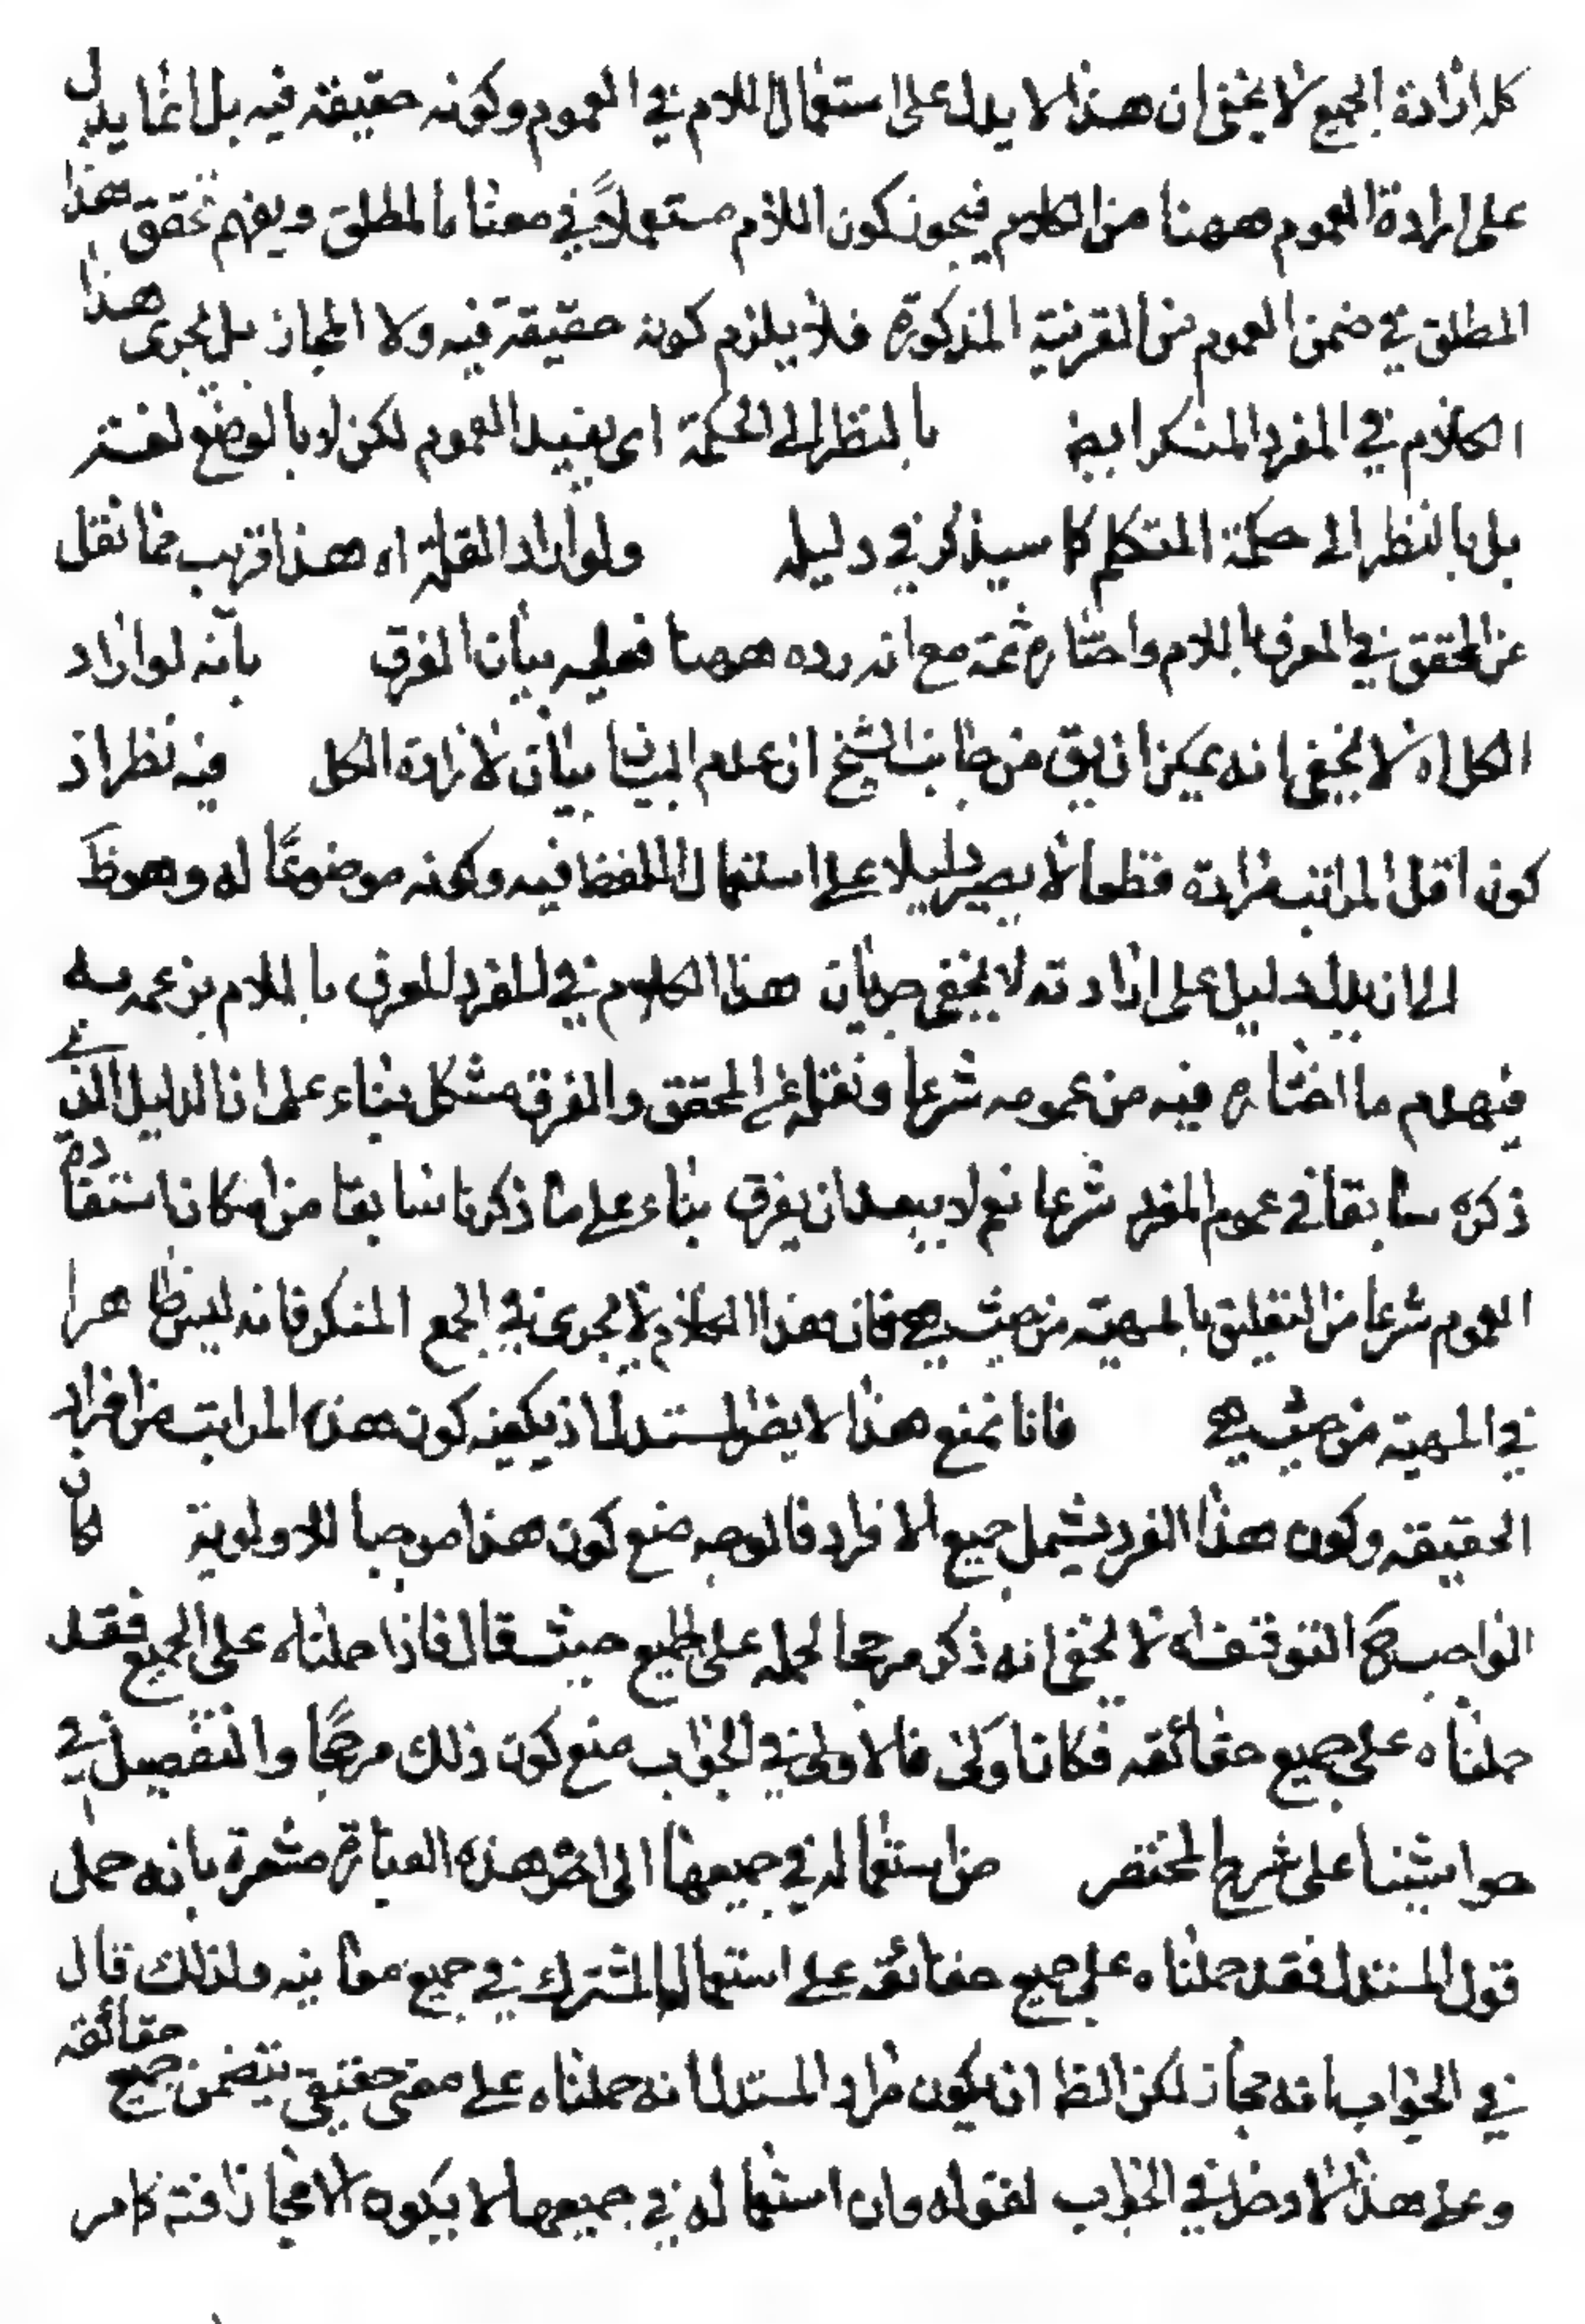 كله ارادة الجميع لا يخفى ان هذا لا يدل على استعمال اللام في العموم وكونه حقيقة فيه بل انما يدل
على ارادة العموم ههنا من الكلام فيجوز كون اللام مستعملاً في معناها المطلق ويفهم تحقق هذا
المطلق في ضمن العموم من القرينة المذكورة فلا يلزم كونه حقيقة فيه ولا المجاز بل يجرى هذا
الكلام في المفرد المنكر ايضا بالنظر الى الحكمة اى يفيد العموم لكن لا بالوضع لغة
بل بالنظر الى حكمة المتكلم كما سيذكر في دليله ولو اراد القلة اه هذا قريب مما نقل
عن المحقق في المعرف باللام واختاره ثمة مع انه رده ههنا فعليه بيان الفرق بانه لو اراد
الكل اه لا يخفى انه يمكن ان يق من جانب الشيخ ان عدم البيان بيان لارادة الكل فيه نظر اذ
كون اقل المراتب مرادة قطعا لا يصير دليلا على استعمال اللفظ فيه وكونه موضوعًا له وهو ظ
الا ان الدليل على ارادته لا يخفى جريان هذا الكلام في المفرد المعرف باللام بزعمه
فيهدم ما اختاره فيه من عمومه شرعا ونقله عن المحقق والفرق مشكل بناء على ان الدليل الذي
ذكره سابقا في عموم المفرد شرعا نعم لا يبعد ان يفرق بناء على ما ذكرنا سابقا من امكان استفادة
العموم شرعا من التعليق بالمهية من حيث هي فان هذا الكلام لا يجرى في الجمع المنكر فانه ليس ظاهرا
في المهية من حيث هي فانا نمنع هذا لا يضر المستدل اذ يكفيه كون هذه المراتب من افراد
الحقيقة وكون هذا الفرد يشمل جميع الافراد فالوجه منع كون هذا موجبا للاولوية كان
الواجب ح التوقف اه لا يخفى انه ذكر مرجحا لحمله على الجميع حيث قال فاذا حملناه على الجميع فقد
حملناه على جميع حقائقه فكان اولى فالاولى في الجواب منع كون ذلك مرجحًا والتفصيل في
حواشينا على شرح المختصر من استعماله في جميعها الى اخر هذه العبارة مشعرة بانه حمل
قول المستدل فقد حملناه على جميع حقائقه على استعمال المشترك في جميع معانيه ولذلك قال
في الجواب بانه مجاز لكن الظ ان يكون مراد المستدل انه حملناه على معنى حقيقي يتضمن جميع حقائقه
وعلى هذا لا دخل في الجواب لقوله وان استعماله في جميعها لا يكون الا مجازا فتد كما مر